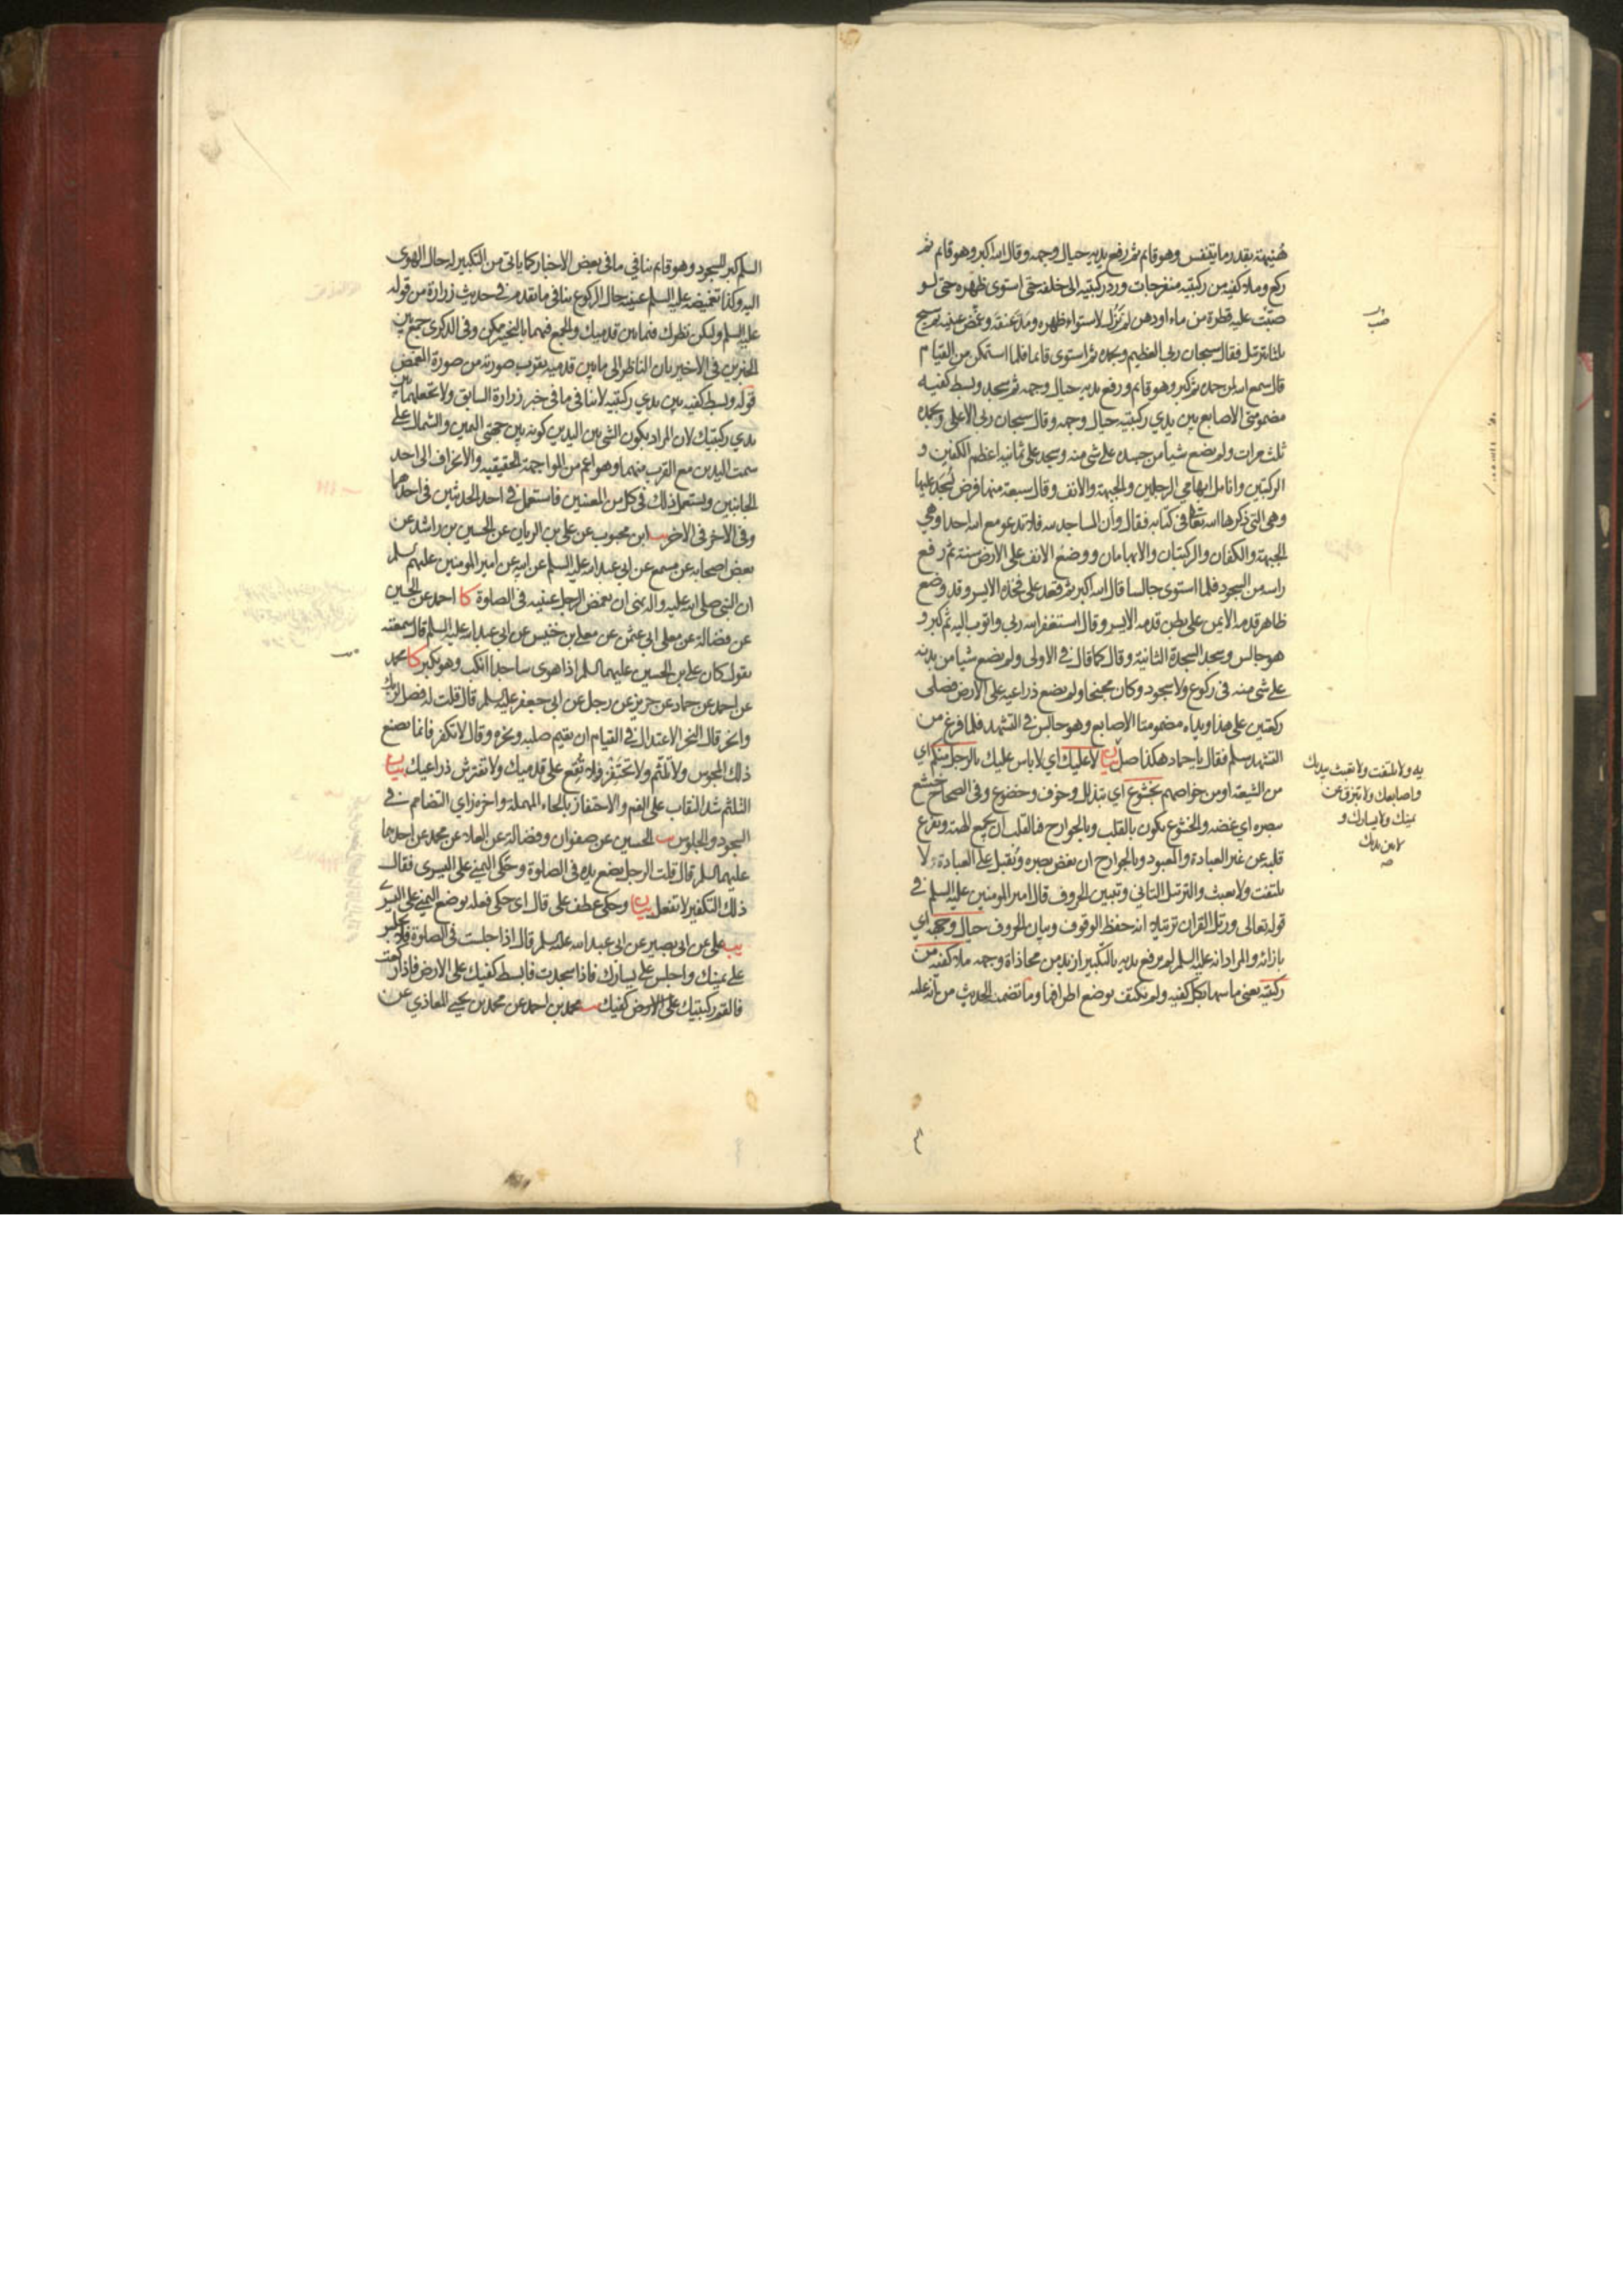 هُنيهة بقدر ما يتنفس وهو قايم ثم رفع يديه حيال وجهه وقال الله اكبر وهو قايم ثم
ركع وملاء كفيه من ركبتيه منفرجات ورد ركبتيه الى خلفه حتى استوى ظهره حتى لو
صُبّت عليه قطرة من ماء او دهن لم تَزُل لاستواء ظهره ومَدّ عنقه وغَمّض عينيه ثم سبح
ثلثا بترتيل فقال سبحان ربى العظيم وبحمده ثم استوى قايما فلما استمكن من القيام
قال سمع الله لمن حمده ثم كبر وهو قايم ورفع يديه حيال وجهه ثم سجد وبسط كفيه
مضمومتى الاصابع بين يدي ركبتيه حيال وجهه وقال سبحان ربى الاعلى وبحمده
ثلث مرات ولم يضع شيا من جسده على شى منه وسجد على ثمانية اعظم الكفين و
الركبتين وانامل ابهامي الرجلين والجبهة والانف وقال سبعة منها فرض يُسجد عليها
وهى التى ذكرها الله تعالى فى كتابه فقال وأن المساجد لله فلا تدعو مع الله احدا وهي
الجبهة والكفان والركبتان والابهامان ووضع الانف على الارض سنة ثم رفع
راسه من السجود فلما استوى جالسا قال الله اكبر ثم قعد على فخذه الايسر وقد وضع
ظاهر قدمه الايمن على بطن قدمه الايسر وقال استغفر الله ربى واتوب اليه ثم كبر و
هو جالس وسجد السجدة الثانية وقال كما قال فى الاولى ولم يضع شيا من بدنه
على شى منه فى ركوع ولا سجود وكان مجنحا ولم يضع ذراعيه على الارض فصلى
ركعتين على هذا ويداه مضمومتا الاصابع وهو جالس فى التشهد فلما فرغ من
التشهد سلم فقال يا حماد هكذا صل بيان لا عليك اي لا باس عليك بالرجل منكم اي
من الشيعة او من خواصهم بخشوع اي بتذلل وخوف وخضوع وفى الصحاح خشع
ببصره اي غضه والخشوع يكون بالقلب وبالجوارح فالقلب ان يجمع الهمة ويفرغ
قلبه عن غير العبادة والمعبود وبالجوارح ان يغض بصره ويُقبل على العبادة ولا
يلتفت ولا يعبث والترتيل التانى وتبيين الحروف قال امير المومنين عليه السلم فى
قوله تعالى ورتل القران ترتيلا انه حفظ الوقوف وبيان الحروف حيال وجهه اي
بازائه والمراد انه عليه السلم لم يرفع يديه بالتكبير ازيد من محاذاة وجهه ملاء كفيه من
ركبتيه يعنى ماسهما بكل كفيه ولم يكتف بوضع اطرافهما وما تضمن الحديث من انه عليه
يه ولا تلتفت ولا تعبث بيديك
واصابعك ولا تبزق عن
يمينك ولا يسارك و
لا بين يديك
صح
السلم كبر للسجود وهو قايم ينافي ما فى بعض الاخبار كما ياتى من التكبير له حال الهوى
اليه وكذا تغميضه عليه السلم عينيه حال الركوع ينافى ما تقدم فى حديث زرارة من قوله
عليه السلم وليكن نظرك فيما بين قدميك والجمع فيهما بالتخيير ممكن وفى الذكرى جمع بين
الخبرين فى الاخير بان الناظر الى ما بين قدميه يقرب صورته من صورة المغمض
قوله وبسط كفيه بين يدي ركبتيه لا ينافى ما فى خبر زرارة السابق ولا تجعلهما بين
يدي ركبتيك لان المراد بكون الشى بين اليدين كونه بين جهتى اليمين والشمال على
سمت اليدين مع القرب منهما وهو اعم من المواجهة الحقيقيه والانحراف الى احد
الجانبين ويستعمل ذلك فى كل من المعنيين فاستعمل فى احد الحديثين فى احدهما
وفى الاخر فى الاخر يب ابن محبوب عن على بن الريان عن الحسين بن راشد عن
بعض اصحابه عن مسمع عن ابى عبد الله عليه السلم عن ابيه عن امير المومنين عليهم السلم
ان النبى صلى الله عليه واله نهى ان يغمض الرجل عينيه فى الصلوة كا احمد عن الحسين
عن فضالة عن معلى ابى عثمن عن معلى بن خنيس عن ابى عبد الله عليه السلم قال سمعته
يقول كان على بن الحسين عليهما السلم اذا هوى ساجدا انكب وهو يكبر كا محمد
عن احمد عن حماد عن حريز عن رجل عن ابى جعفر عليه السلم قال قلت له فصل لربك
وانحر قال النحر الاعتدال فى القيام ان يقيم صلبه ونحره وقال لا تكفر فانما يصنع
ذلك المجوس ولا تلثّم ولا تحتفز ولا تُقع على قدميك ولا تفترش ذراعيك بيان
التلثم شد النقاب على الفم والاحتفاز بالحاء المهملة واخره زاي التضامم فى
السجود والجلوس يب الحسين عن صفوان وفضالة عن العلاء عن محمد عن احدهما
عليهما السلم قال قلت الرجل يضع يده فى الصلوة وحكى اليمنى على اليسرى فقال
ذلك التكفير لا تفعل بيان وحكى عطف على قال اى حكى فعله بوضع اليمنى على اليسرى
يب على عن ابى بصير عن ابى عبد الله عليه السلم قال اذا جلست فى الصلوة فلا تجلس
على يمينك واجلس على يسارك فاذا سجدت فابسط كفيك على الارض فاذا ركعت
فالقم ركبتيك كفيك يب محمد بن احمد عن محمد بن يحيى المعاذي عن